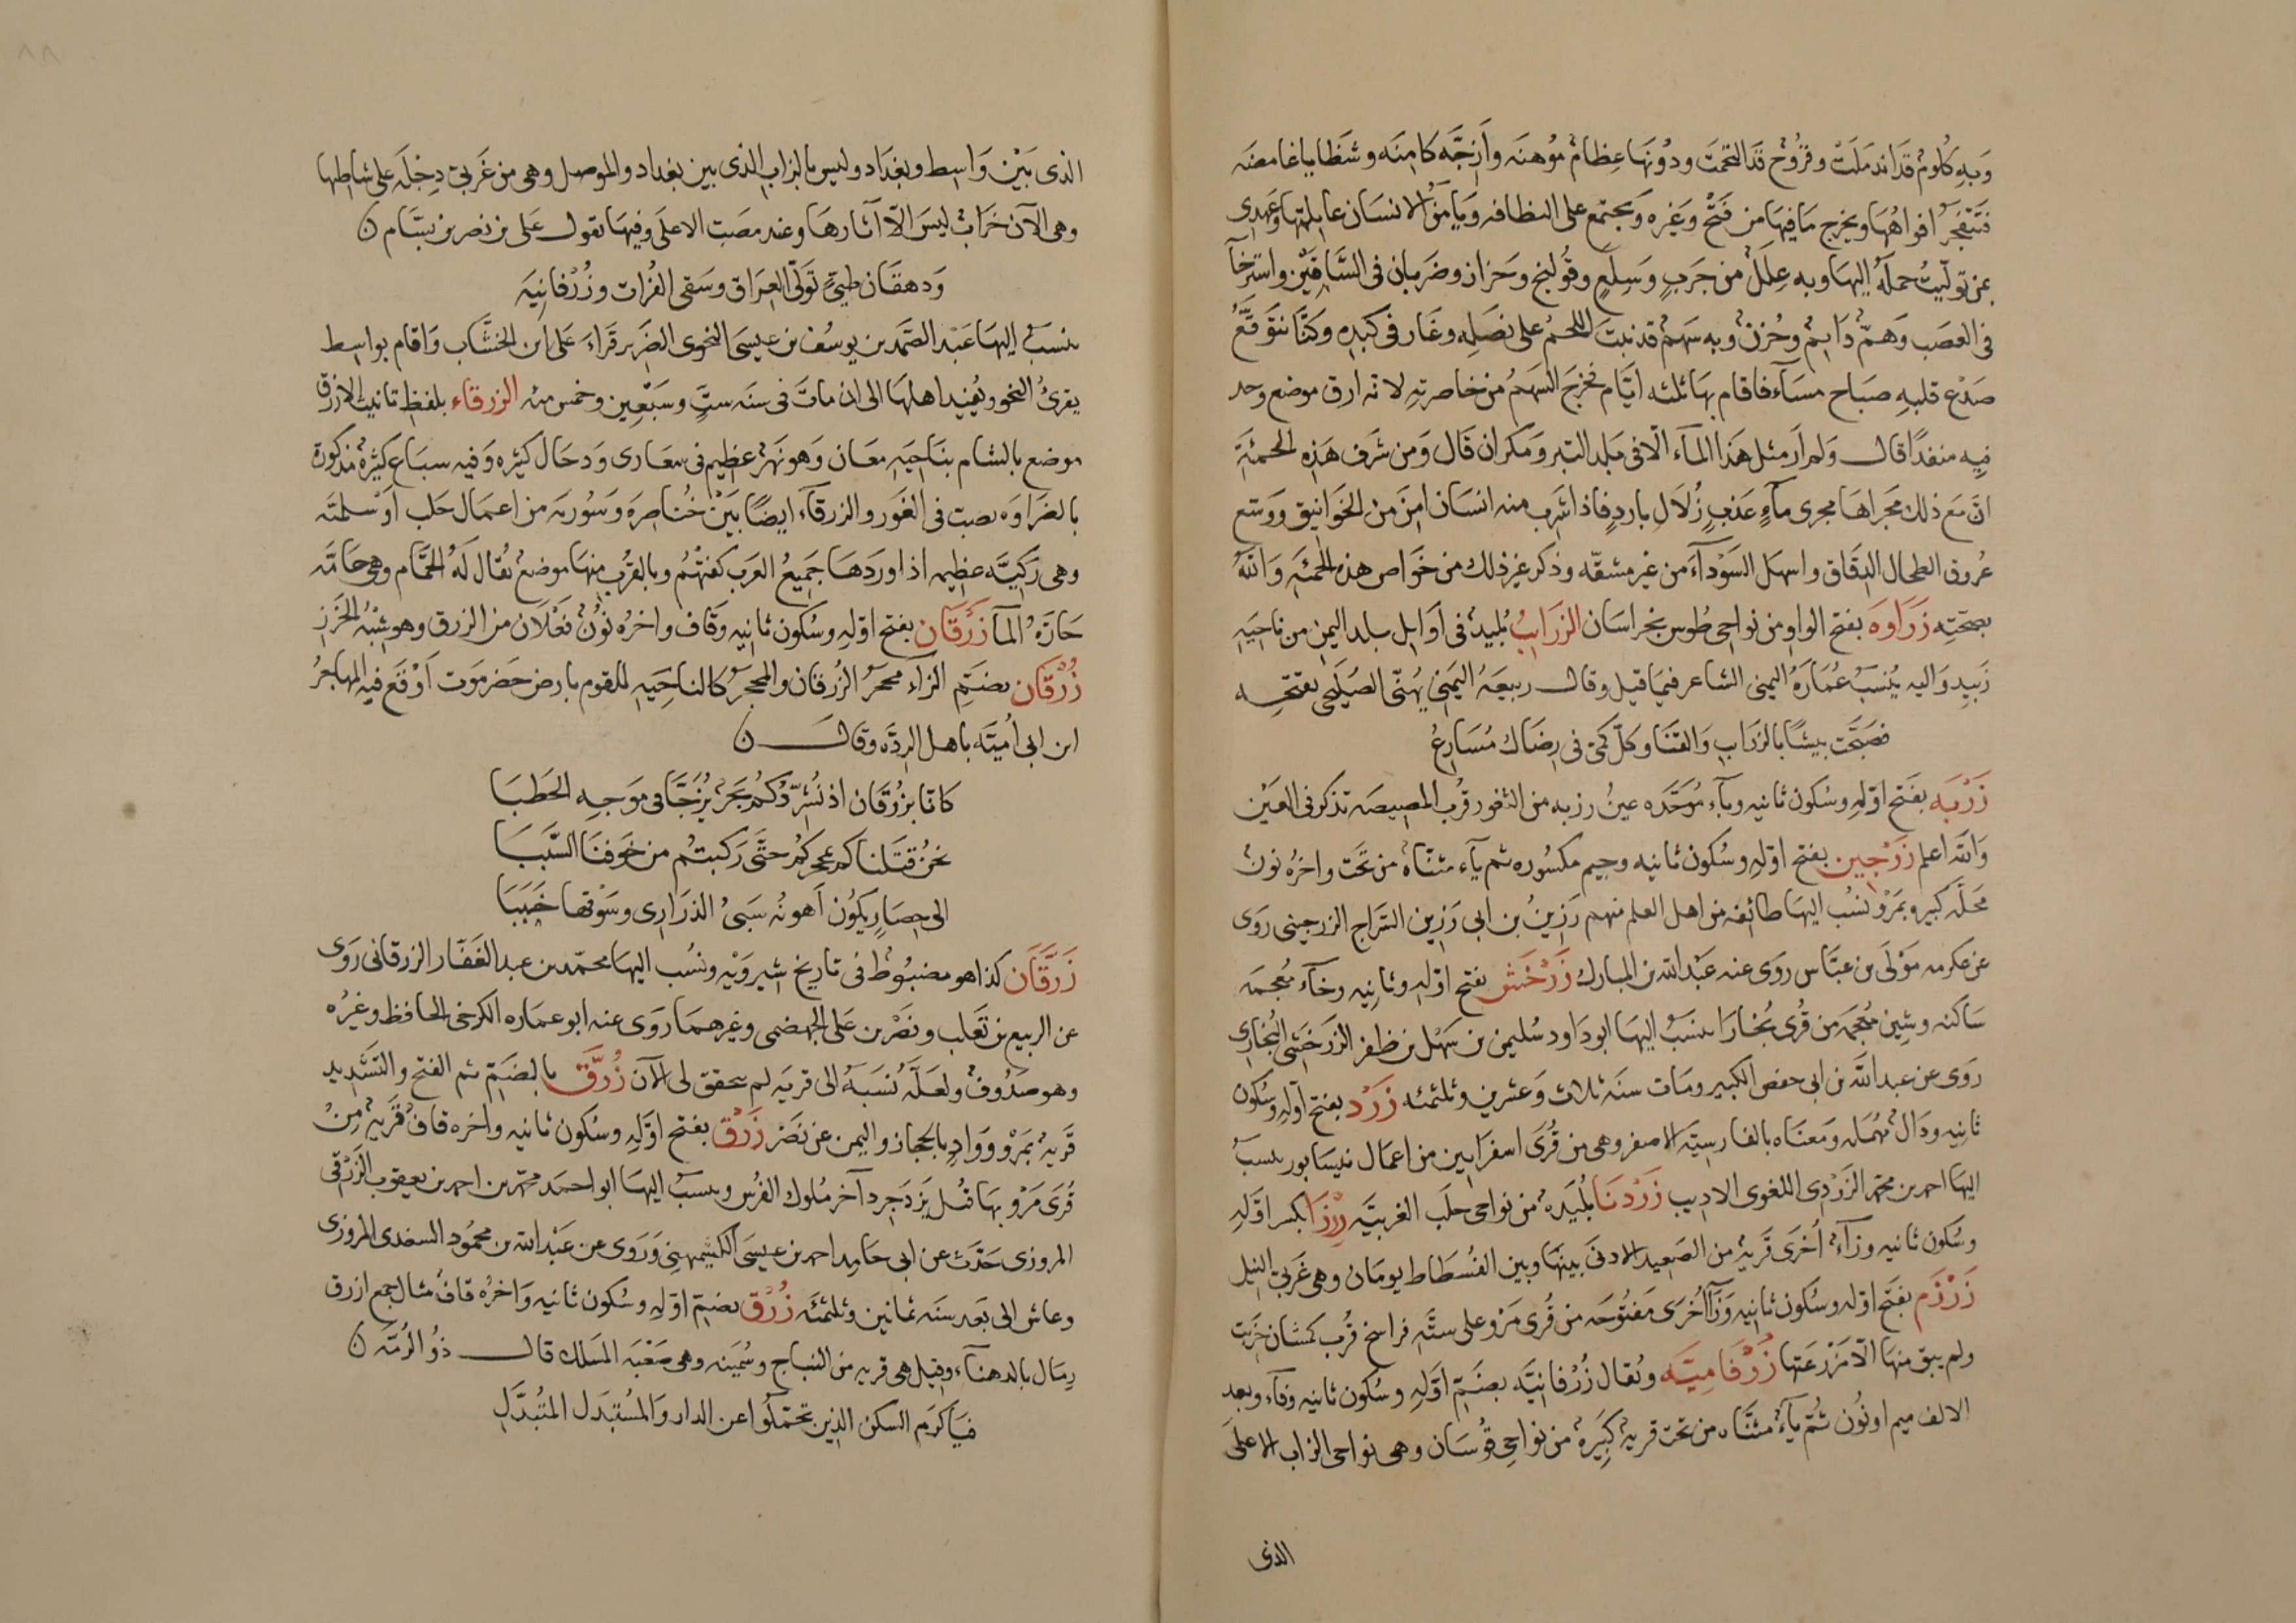 وَبِهِ كُلُومٌ قَدَ اندملَتْ وقرُوح قد التحمَتَ ودُونهَا عِظامٌ مُوهنَه وأزجَّه كامِنَه وشظايا غامضَه
فتَتفجرُ افواهُهَا ويخرج مَا فيهَا مِن قَتحْ وَغيره وَيجتَمع على النظافه ويَامَنُ الانسَان غايلتَها وعَهدِى
بمن تولّيتُ حملَهُ اليهَا وبه عِلَلٌ من جَربٍ وَسِلَعٍ وقولنج وَحزاز وضَربان فى السَّاقَيْن واسترخآ
فى العصَب وَهمٌّ دَايمٌ وحُزنٌ وبه سَهمٌ قد نبتَ اللحمُ على نصَلِهِ وغار فى كبدهِ وكنَّا نتوقَّعُ
صَدْع قلبهِ صبَاح مسَآء فاقام بهَا ثلثه ايَّام فخرجَ السَهمُ من خاصرتهِ لانه ارق موضع وجد
فيهِ منفذًا قال وَلم اَر مثل هَذا المآء الّا فى بلد التيز وَمكران قَال وَمن شرَف هَذِهِ الحمئَةَ
انّ معَ ذلك مَجرَاهَا مجرى مآءٍ عَذبٍ زُلاَلٍ باردٍ فاذا شَرِب منه انسَان امِنَ من الخوَانيق وَوسَع
عُروق الطحال الدقَاق واسهَل السَوْدآءَ من غير مشقّه وذكر غير ذلك من خَواص هذه الحمئَهِ وَاللهُ
بصحّتِه زَرَاوَهَ بفتح الواو من نواحى طُوس بخراسَان الزرَابُ بُليدٌ فى أوَايل بلد اليمن من ناحيَهِ
زَبيدِ وَاليه يُنسَبُ عُمَارَةُ اليمنى الشاعر فيمَا قيل وقال ربيعَهُ اليمَنى يُهنّى الصُليحى بفتحه
فصَبَّحَت بيشًا بالزرَابِ وَالقنَا وكلّ كَمىّ فى رِضَاك مُسَارِعُ
زَرْبَه بفتَح اوّلهِ وسُكون ثانيه وبآء مُوَحَّده عينُ زربه من الثغور قُربَ المصيصَه تذكر فى العيَنْ
وَالله اعلم زَرْجِين بفتح اوّلهِ وسُكون ثانيه وجيم مكسُوره ثم يآء مثنّاهٌ من تَحت واخرُه نونٌ
محَلّه كبيرَ بمَرْو نسُب اليهَا طائفه من اهل العلم منهم رَزينُ بن ابى رَزِين السَّراج الزرجينى رَوى
عن عكرمه مَوْلَى بن عبَّاس روَى عنه عَبْد الله بن المبارك زَرْخَش بفتح اوّلهِ وثانِيه وخآء مُعجمَه
سَاكنه وشِين مُعجَمه من قُرى بُخارَا ينسَبُ اليهَا ابو دَاود سُليمن بن سَهْل بن ظفر الزرخَشى البُخارى
روَى عن عبد الله بن ابى حفص الكبير ومَات سنَه ثلاث وَعشرين وثلثمئه زَرْد بفتح اوّله وسُكون
ثانيهِ ودَالٌ مُهْمَله وَمعنَاه بالفارسيّه الاصفر وهى من قُرَى اسفرَايين من اعمَال نيسَابور ينسبُ
اليهَا احمد بن محمّد الزَرْدِى اللغوى الاديب زَرْدَنَا بُليَدهٌ من نواحى حلَب الغربيَّه زِرْزَا بكسر اوَّلهِ
وسُكون ثانيه وزآءٌ اُخرَى قَريهٌ من الصَعيد الادنى بينهَا وبين الفُسطَاط يومَان وهى غربىّ النيل
زَرْزَم بفتَح اوّله وسُكون ثانِيه وَزَآ اُخرَى مَفتُوحَه من قُرى مَرْو على ستَّه فراسخ قُرب كمسَان خَربت
ولم يبق منهَا الّا مَزْرعَتها زُرْفَاميَّه ويُقال زُرْفانيَّه بضَمّ اوّلهِ وسُكون ثانيه وفآء وبعد
الالف ميم او نُون ثمّ يآءٌ مثنَّاه من تحت قريهٌ كبِيَرهٌ من نواحى قوُسَان وهى نواحى الزاب الاعلى
الذى
الذى بَيْن وَاسِط وبغدَاد وليس بالزاب الذى بين بغداد والموصل وهى من غَربىّ دِجلَه على شاطِئها
وهى الآن خَرَابٌ ليسَ الّا آثارهَا وعند مصَبّ الاعلَى وفيهَا يَقول عَلى بن نصر بن بسَّام ن
وَدهقَان طيّ تَولّى العِرَاق وسَقى الفُرات وزُرْفانيَه
ينسَبُ إليهَا عَبْد الصَّمَد بن يوسُف بن عيسَى النحوى الضَرير قَراءَ عَلى ابن الخشَّاب وَاقام بواسِط
يقرئُ النحو ويُفيد اهلهَا الى ان ماتَ فى سنَه ستٍّ وسَبْعِين وخمس مئه الزرقاء بلفظ تانيث الازرق
موضع بالشام بنَاحيَهِ معَان وَهو نَهرٌ عظيم فى شعَارى وَدحَال كثيره وَفيه سبَاع كثيرهٌ مذكورة
بالضرَاوَه يصبّ فى الغَور والزرقآء ايضًا بَيْنَ خُناصِرَة وَسُوريَه من اعمَال حلب اَوْ سلميَّه
وهى ركيّه عظيمه اذا وردَهَا جَميعُ العَرب كفَتهُم وبالقُربِ منهَا موضع يُقال لَهُ الحمَّام وهى حامَّه
حَارّهُ المآ زَرْقَان بفتح اوّلهِ وسُكون ثانيهِ وقاف واخرُه نُونٌ فعْلَان من الزرق وهو شِبْهُ الخَرَز
زُرْقَان بضَمِّ الزاء محجرَ الزُرقان والمحجرُ كالناحِيَهِ للقوم بارض حَضرموَت أَوْقَعَ فيهِ المهاجرُ
ابن ابى أُميّه باهل الردّه وقال ن
كانا بزُرْقَان اذ نُشرّدُكُم بَحرٌ يُزَجّى فى مَوجه الحَطبَا
نحنُ قتلناكم بمحجركم حتَّى رَكبتُم من خَوفنَا السَّببَا
الى حِصَارٍ يكوُن أهونُه سَبىُ الذرَارى وسَوْقها خَببَا
زَرَّقَان كذا هو مضبوُط فى تاريخ شيرويْه ونسُب اليهَا محمّد بن عبد الغفَّار الزرقانى رَوى
عن الربيع بن تَغلب ونصْر بن عَلى الجهضمى وغيرهمَا روَى عنه ابو عماره الكرخى الحافظ وغيرُه
وهو صَدُوقٌ ولعَلّه نُسَبَهُ الى قريه لم يتحقق لى الآن زُرَّق بالضَمّ ثم الفتح والتَشديد
قَريهٌ بمَرْو وَوَادٍ بالحجَاز واليمن عن نَصْر زَرْق بفتح اوّلهِ وسُكون ثانيه واخره قافٌ قَريهٌ مِنْ
قُرَى مَرْو بهَا قتُل يَزدَجِرد آخر مُلوك الفُرس وينسبُ اليهَا ابو احمَد محمّد بن احمد بن يعقوب الزَرْقى
المروزى حَدّث عن ابى حَامِد احمد بن عيسَى الكشيمهنى وَرَوى عن عَبْد الله بن محمُود السعدى المروزى
وعاش الى بَعد سنَه ثمانين وثلثمئَه زُرْق بضمّ اوّلهِ وسُكون ثانيه وَاخرُه قافٌ مثال جمع ازرق
رِمَال بالدهنآء وقيل هى قريه من النباج وسُمَينه وهى صَعْبَه المَسلك قال ذُو الرُمَّه ن
فيَا كَرَم السكن الذِين تحَمّلُوا عن الدار وَالمُستَبَدل المتُبَدّل